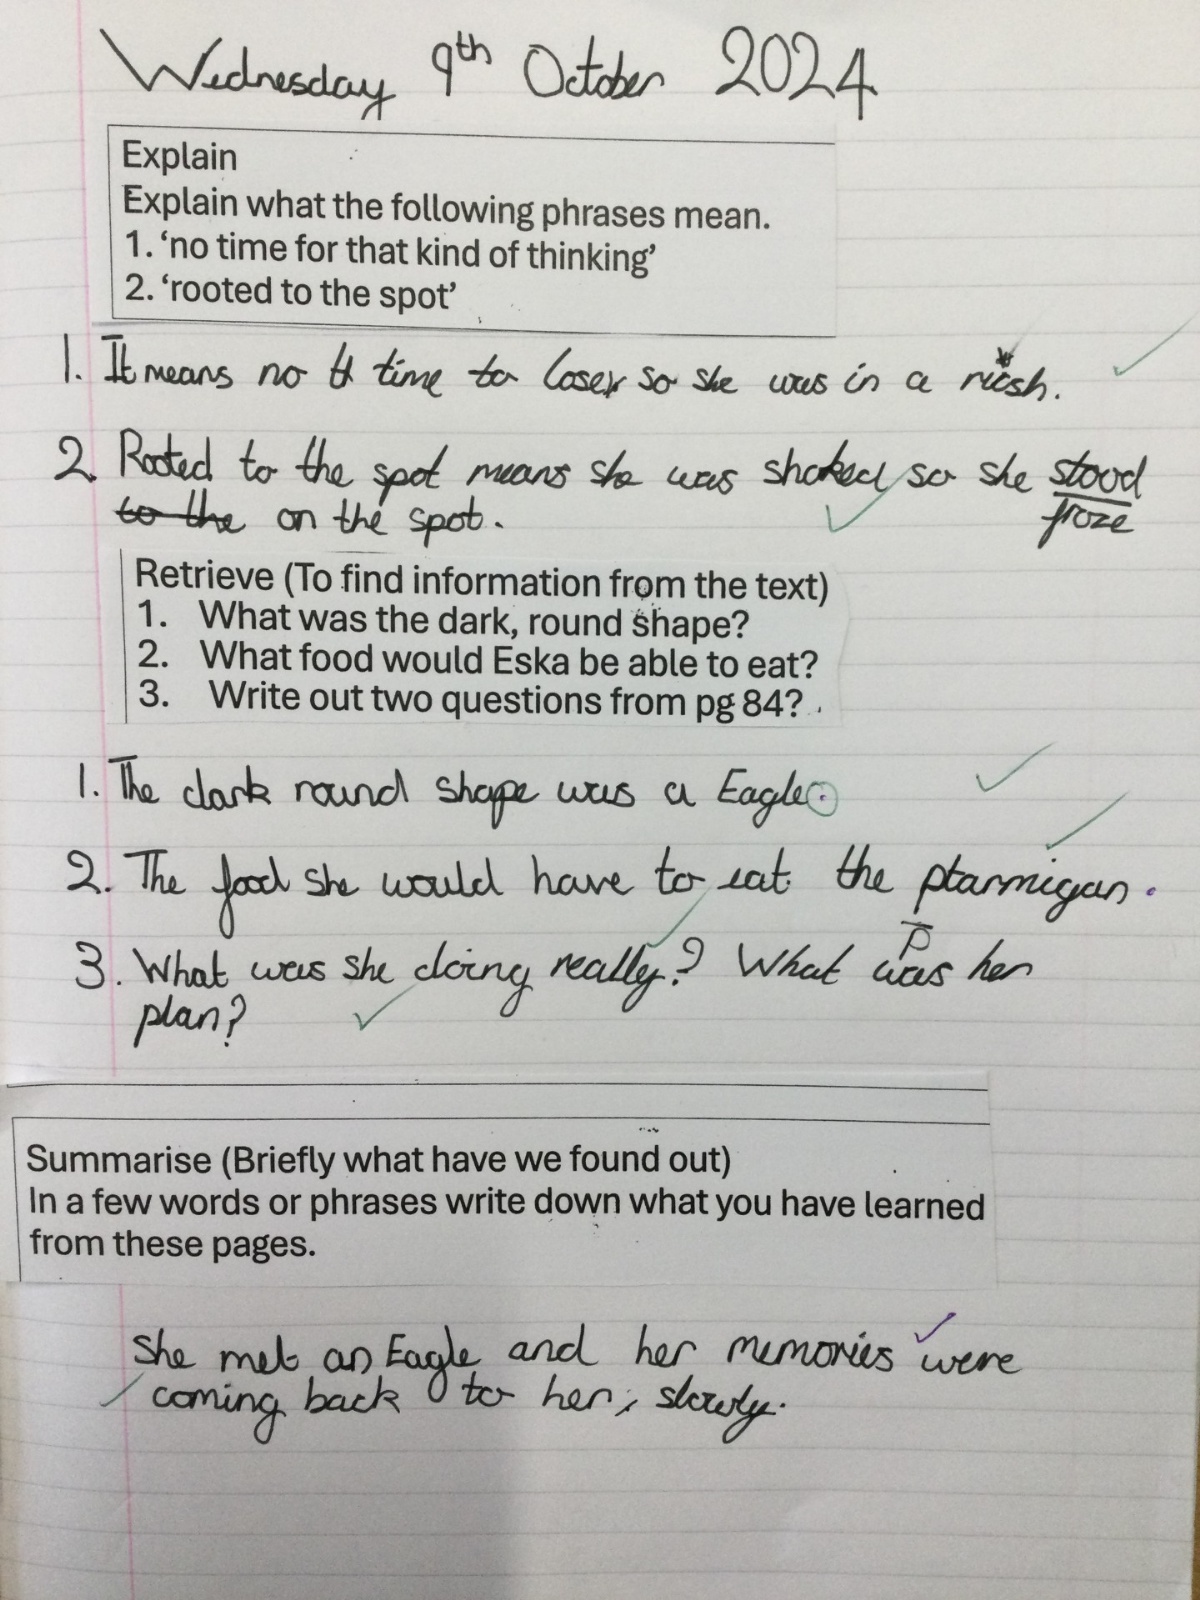 Wednesday 9th October 2024
Explain
Explain what the following phrases mean.
1. ‘no time for that kind of thinking’
2. ‘rooted to the spot’
1. It means no time to lose so she was in a rush.
2. Rooted to the spot means she was shoked so she stood
froze
to the on the spot.
Retrieve (To find information from the text)
1. What was the dark, round shape?
2. What food would Eska be able to eat?
3. Write out two questions from pg 84?
1. The dark round shape was a Eagle.
2. The food she would have to eat the ptarmigan.
P
3. What was she doing really? What was her
plan?
Summarise (Briefly what have we found out)
In a few words or phrases write down what you have learned
from these pages.
She met an Eagle and her memories were
coming back to her, slowly.